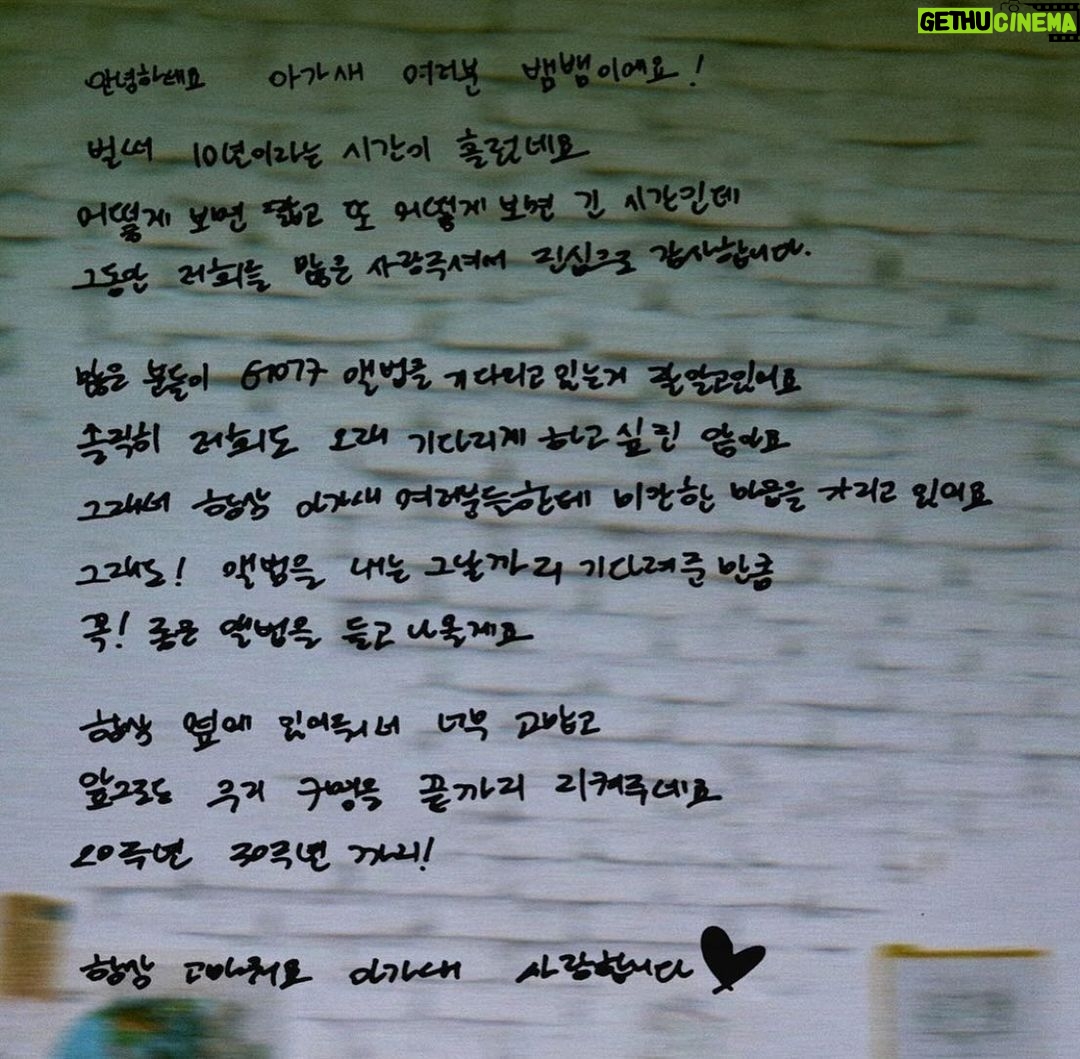 GETHUCINEMA
안녕하세요 아가새 여러분 뱀뱀이에요!
벌써 10년이라는 시간이 흘렀네요
어떻게 보면 짧고 또 어떻게 보면 긴 시간인데
그동안 저희를 많은 사랑주셔서 진심으로 감사합니다.
많은 분들이 GOT7 앨범을 기다리고 있는거 잘 알고있어요
솔직히 저희도 오래 기다리게 하고 싶진 않아요
그래서 항상 아가새 여러분들한테 미안한 마음을 가지고 있어요
그래도! 앨범을 내는 그날까지 기다려준 만큼
꼭! 좋은 앨범을 들고 나올게요
항상 옆에 있어줘서 너무 고맙고
앞으로도 우리 끝까지 지켜주세요
20주년 30주년 까지!
항상 고마워요 아가새 사랑합니다